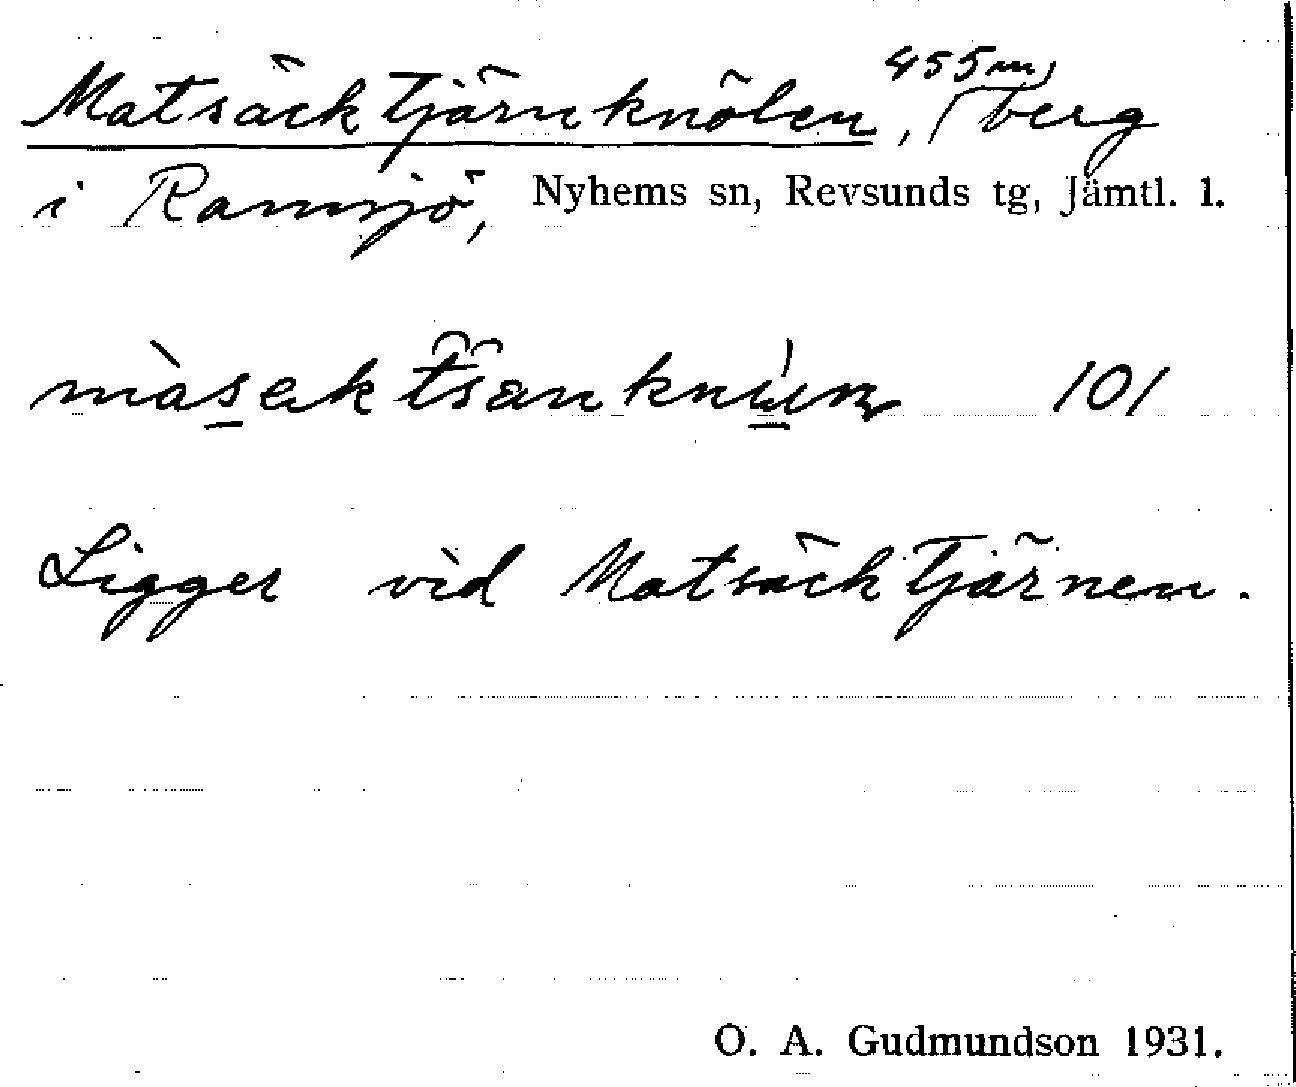 Matsäcktjärnknölen, 455 m, berg
i Ramsjö, Nyhems sn, Revsunds tg, Jämtl. l.
101
Ligger vid Matsäcktjärnen.
O. A. Gudmundson 1931.